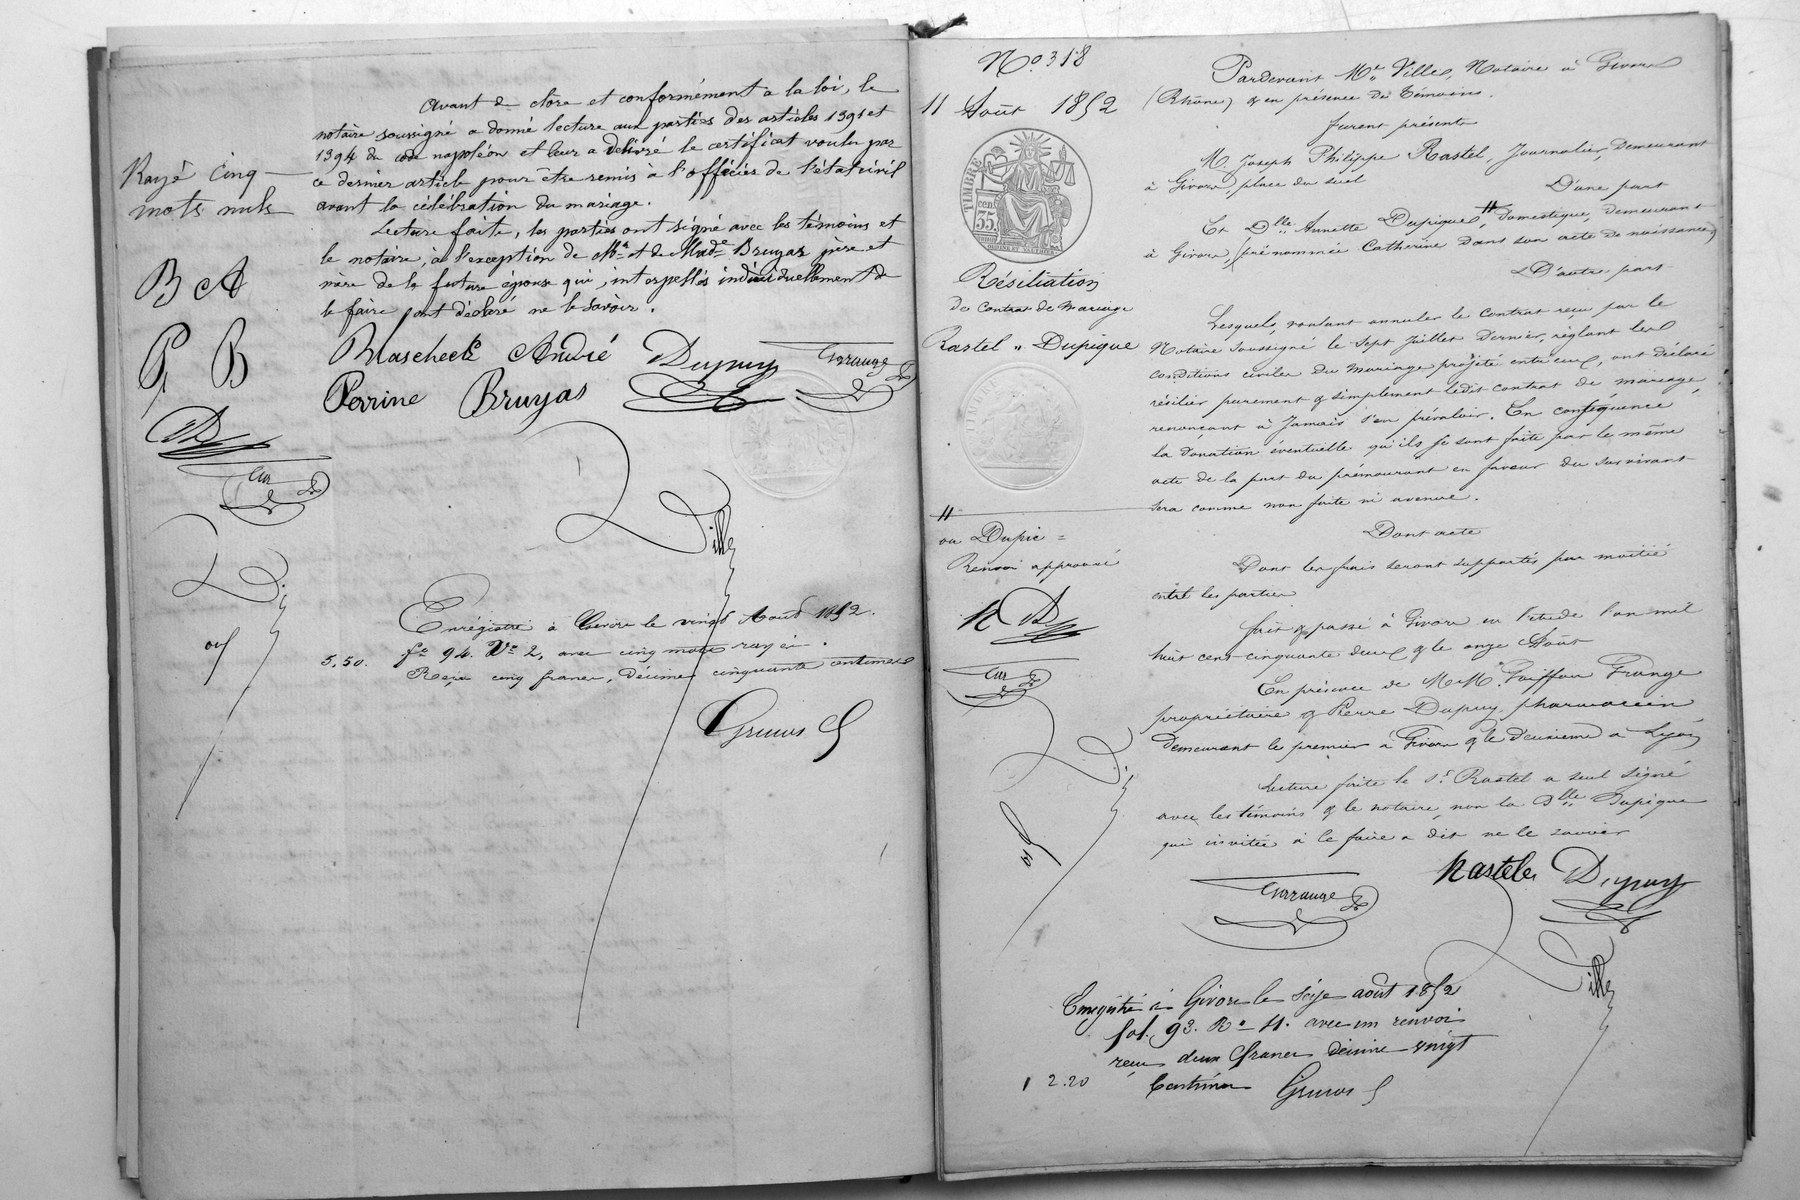 Avant de clore et conformément à la loi, le
notaire soussigné a donné lecture aux parties des articles 1391 et
1394 du code napoléon et leur a délivré le certificat voulu par
ce dernier article pour être remis à l'officier de l'état civil
avant la célébration du mariage.
Lecture faite, les parties ont signé avec les témoins et
le notaire, à l'exception de Mr. et de Made. Bruyas père et
mère de la future épouse qui, interpellés individuellement de
le faire ont déclaré ne le savoir.
Rayé cinq
mots nuls
B A
P B
D
Gar
Blascheck André Dupuy Garrange
Perrine Bruyas
Ville
Enregistré à Givors le vingt Août 1852.
fo 94. Vo 2, avec cinq mots rayés.
5.50. Reçu cinq francs, décimes cinquante centimes
No 318
11 Août 1852
TIMBRE
35 cen.
Résiliation
De Contrat de Mariage
Rastel " Dupique
ou Dupic =
Renvoi approuvé
R D
Gar
Pardevant Me. Ville, Notaire à Givors
(Rhône) & en présence de témoins.
furent présents
M. Joseph Philippe Rastel, Journalier, demeurant
à Givors, place du suel
D'une part
Et Dlle Annette Dupique, " domestique, demeurant
à Givors, (prénommée Catherine dans son acte de naissance)
D'autre part
Lesquels, voulant annuler le contrat reçu par le
Notaire soussigné le sept juillet dernier, réglant les
conditions civiles du mariage projeté entr'eux, ont déclaré
résilier purement & simplement ledit contrat de mariage,
renonçant à jamais s'en prévaloir. En conséquence
la donation éventuelle qu'ils se sont faite par le même
acte de la part du prémourant en faveur du survivant
sera comme non faite ni avenue.
Dont acte
Dont les frais seront supportés par moitié
entre les parties
fait & passé à Givors en l'étude l'an mil
huit cent cinquante deux & le onze Août
En présence de M.M. Goiffon Frange
propriétaire & Pierre Dupuy pharmacien
demeurant le premier à Givors & le deuxième à Lyon
Lecture faite le Sr. Rastel a seul signé
avec les témoins & le notaire, non la Dlle Dupique
qui invitée à le faire a dit ne le savoir
Rastel Dupuy
Garrange
Ville
Enregistré à Givors le seize août 1852
fol. 93. Ro 4. avec un renvoi
reçu deux francs décime vingt
2.20 Centimes